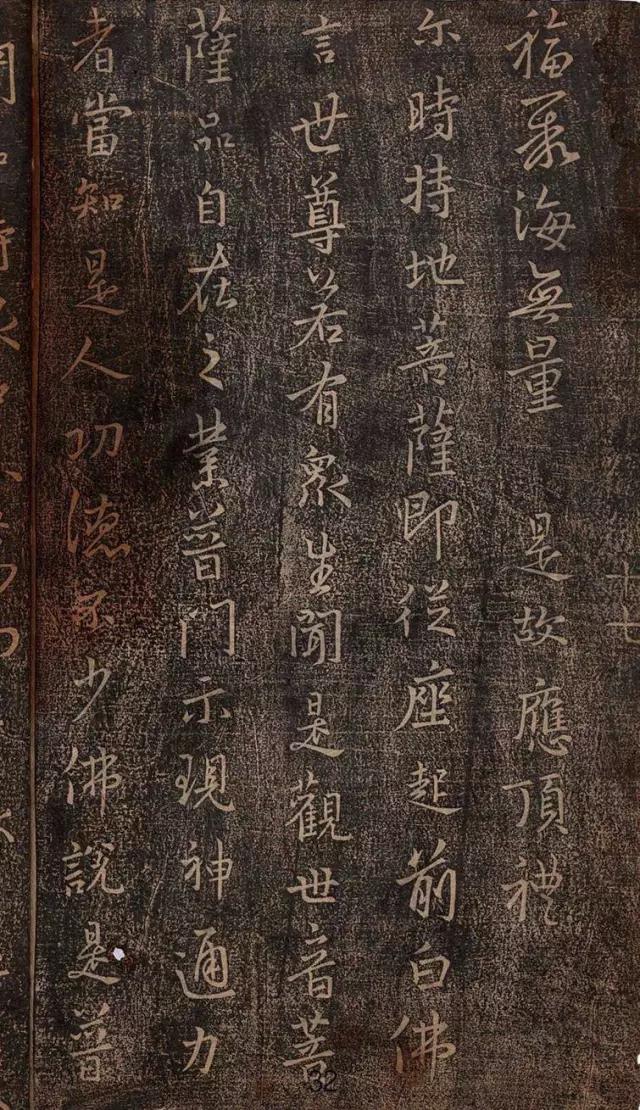 十七
福聚海無量 是故應頂禮
尔時持地菩薩即從座起前白佛
言世尊若有衆生聞是觀世音菩
薩品自在之業普門示現神通力
者當知是人功德不少佛說是普
32